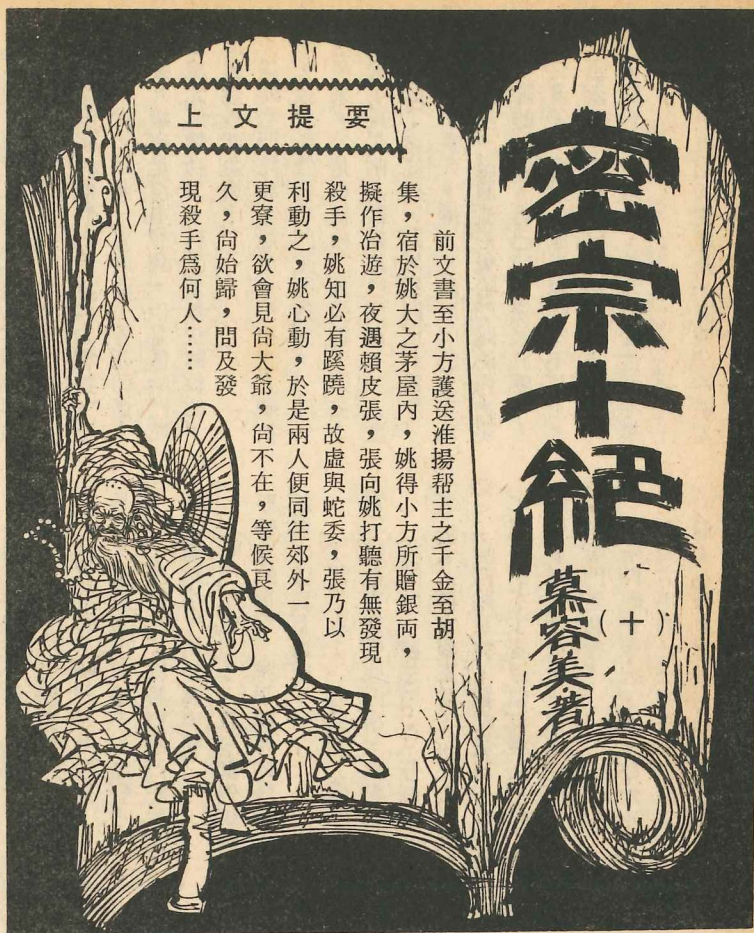 密宗十絕
(十)
慕容美著
上文提要
前文書至小方護送淮揚帮主之千金至胡
集，宿於姚大之茅屋內，姚得小方所贈銀両，
擬作冶遊，夜遇賴皮張，張向姚打聽有無發現
殺手，姚知必有蹊蹺，故虛與蛇委，張乃以
利動之，姚心動，於是兩人便同往郊外一
更寮，欲會見尙大爺，尙不在，等候良
久，尙始歸，問及發
現殺手爲何人……